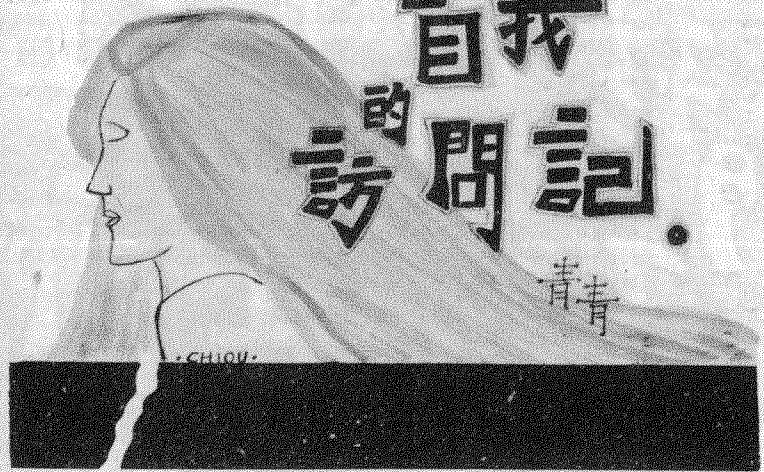 自我
的
訪問記.
青青
·CHIOU·